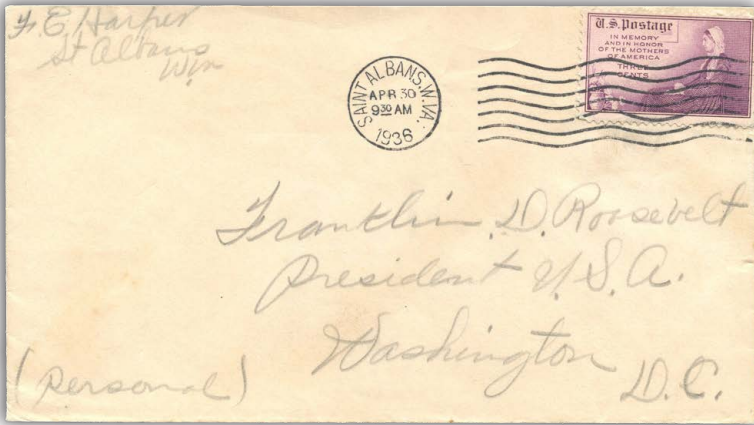 F. E. Harper
St Albans
W Va
SAINT ALBANS, W. VA.
APR 30
9 30 AM
1936
U.S. Postage
IN MEMORY
AND IN HONOR
OF THE MOTHERS
OF AMERICA
THREE
CENTS
Franklin. D. Roosevelt
President U. S. A.
Washington
D. C.
(Personal)